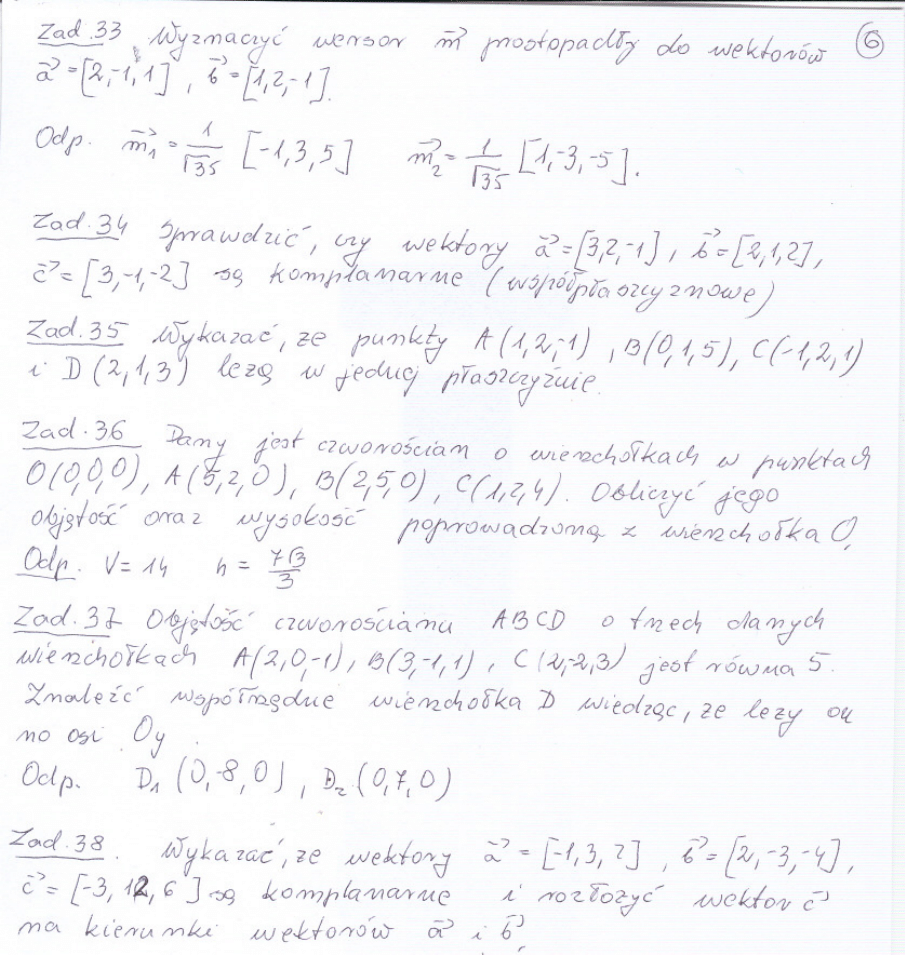 Zad.33 Wyznaczyć wersor m⃗ prostopadły do wektorów 6
a⃗ = [2,-1,1], b⃗ = [1,2,-1].
Odp. m⃗₁ = 1/√35 [-1,3,5] m⃗₂ = 1/√35 [1,-3,-5].
Zad.34 Sprawdzić, czy wektory a⃗ = [3,2,-1], b⃗ = [2,1,2],
c⃗ = [3,-1,-2] są komplanarne (współpłaszczyznowe)
Zad.35 Wykazać, ze punkty A(1,2,-1), B(0,1,5), C(-1,2,1)
i D(2,1,3) lezą w jednej płaszczyźnie.
Zad.36 Dany jest czworościan o wierzchołkach w punktach
O(0,0,0), A(5,2,0), B(2,5,0), C(1,2,4). Obliczyć jego
objętość oraz wysokość poprowadzoną z wierzchołka O.
Odp. V = 14 h = 7√3/3
Zad.37 Objętość czworościanu ABCD o trzech danych
wierzchołkach A(2,0,-1), B(3,-1,1), C(2,-2,3) jest równa 5.
Znaleźć współrzędne wierzchołka D wiedząc, ze lezy on
na osi Oy.
Odp. D₁(0,-8,0), D₂(0,7,0)
Zad.38. Wykazać, ze wektory a⃗ = [-1,3,2], b⃗ = [2,-3,-4],
c⃗ = [-3,12,6] są komplanarne i rozłozyć wektor c⃗
na kierunki wektorów a⃗ i b⃗.